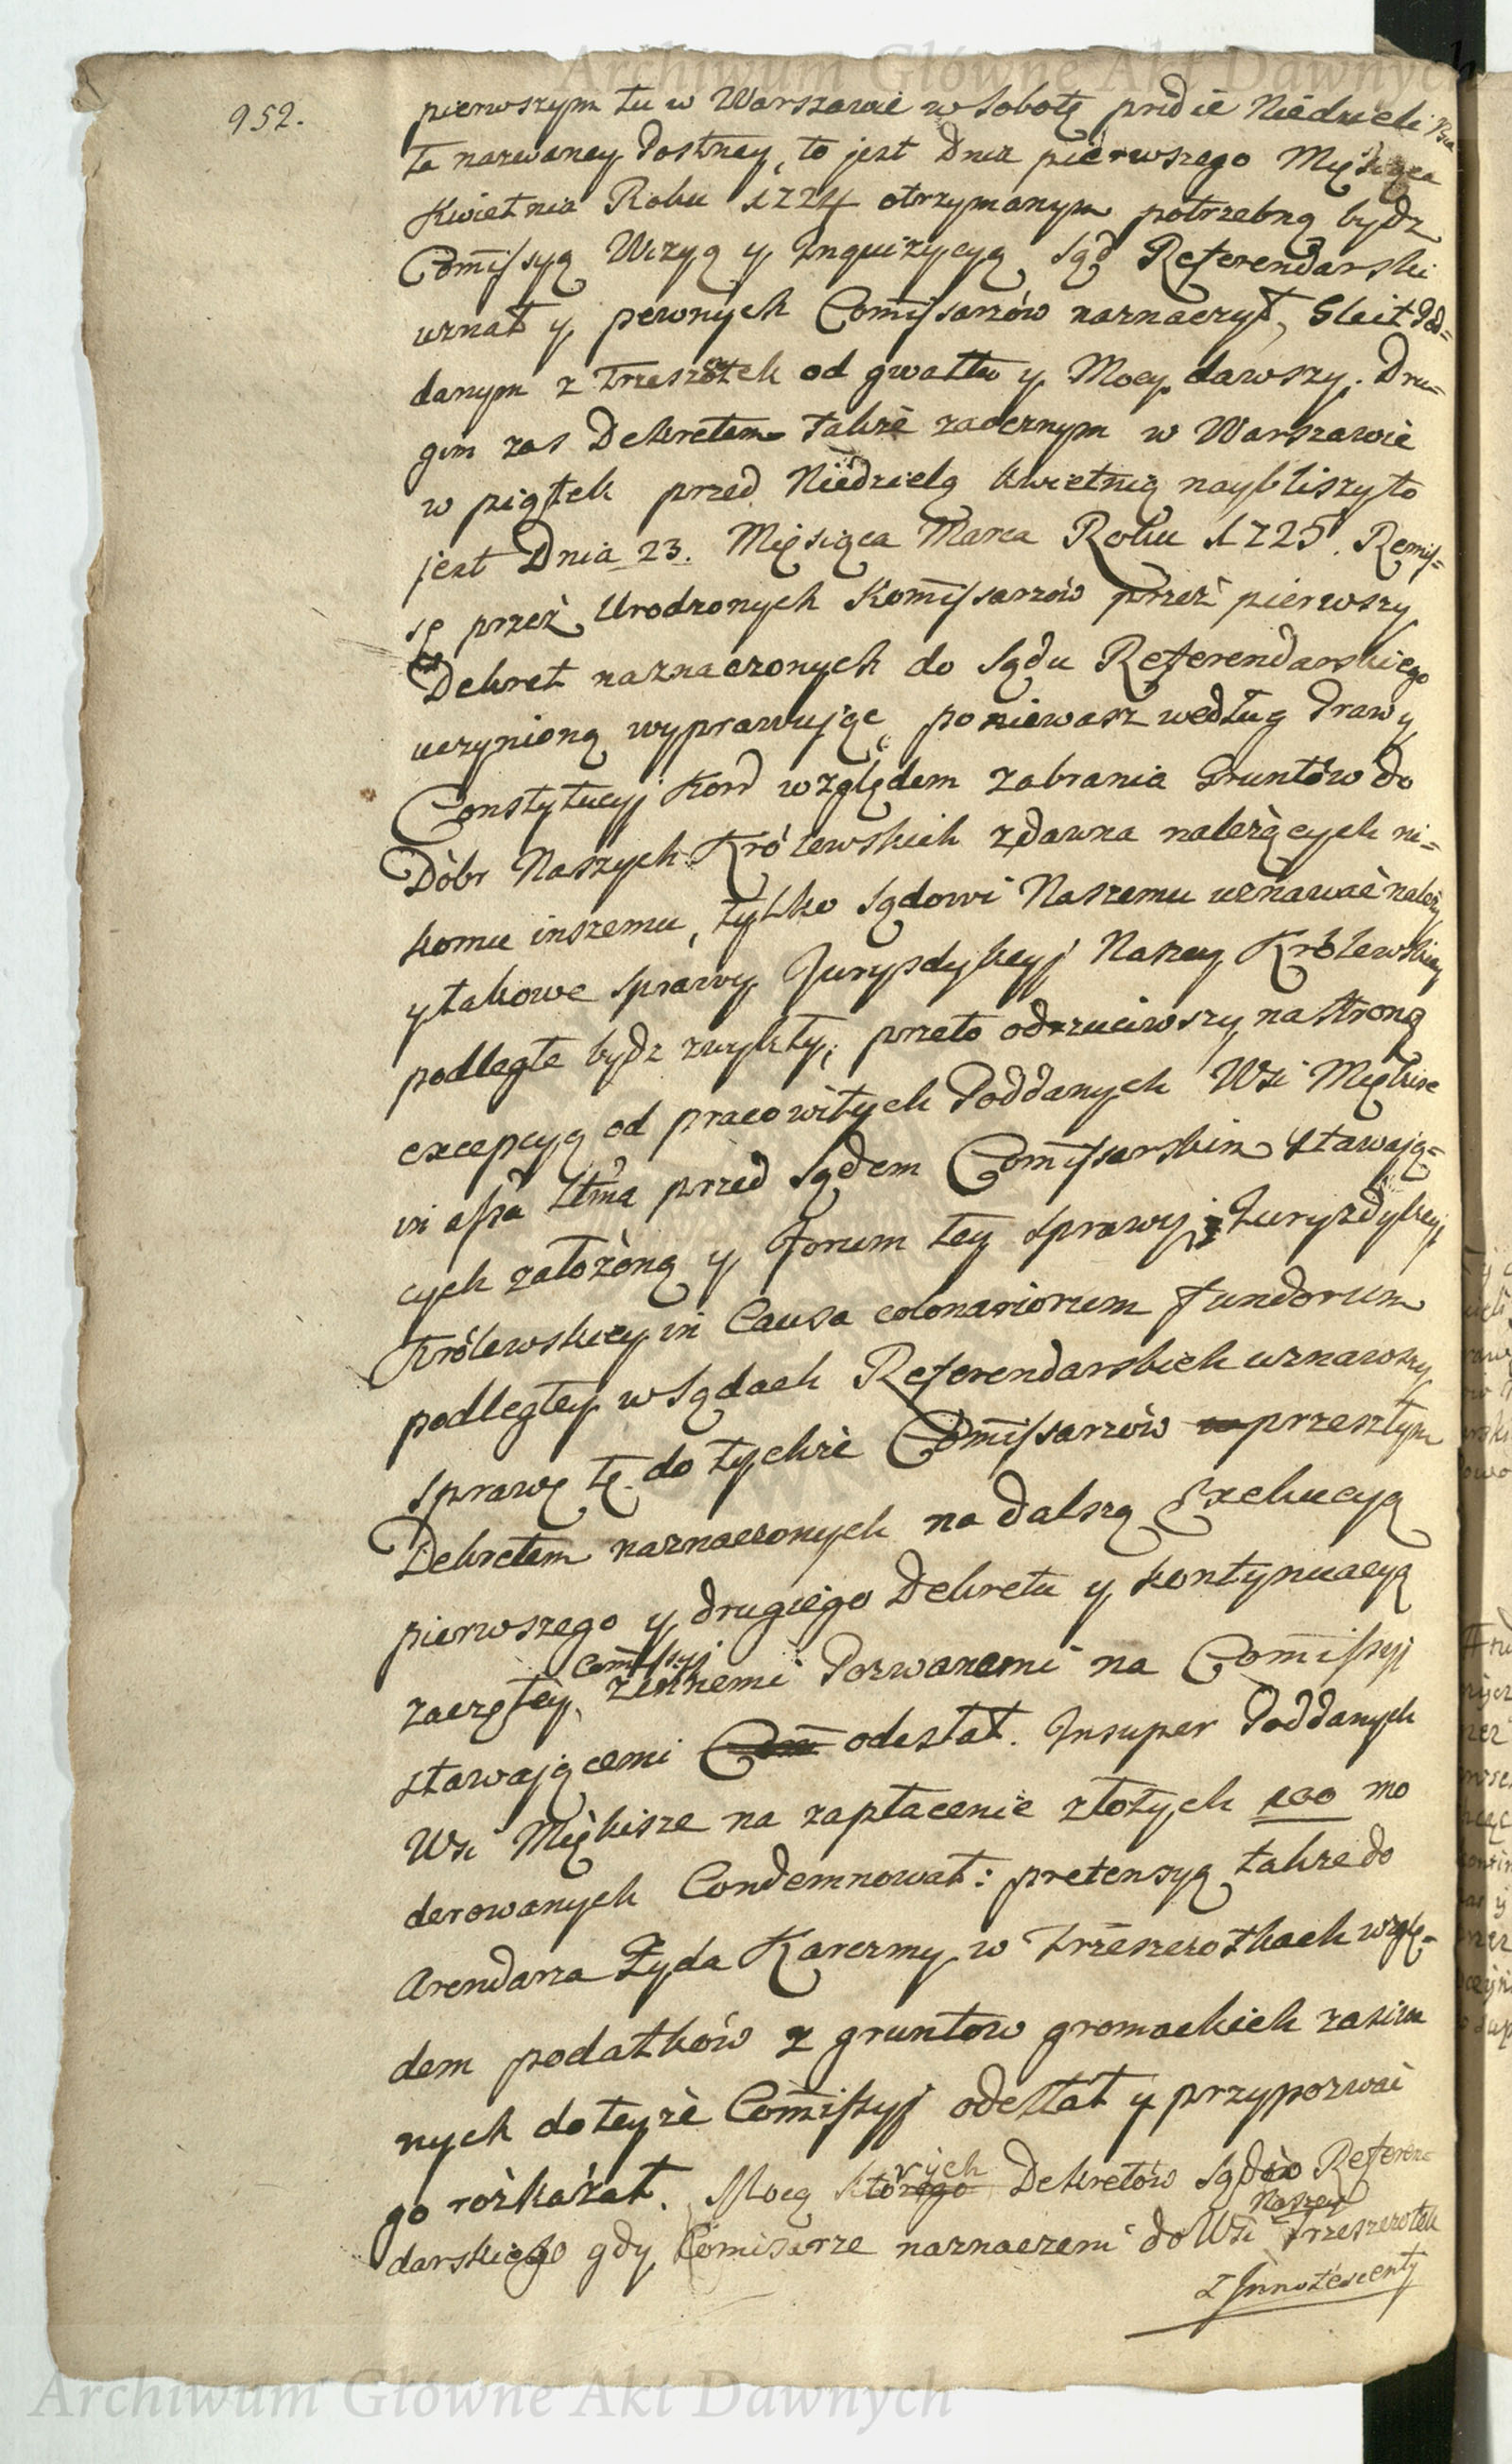 Archiwum Główne Akt Dawnych
952.
pierwszym tu w Warszawie w Sobotę pridie Niedzieli
te nazwaney Postney, to jest Dnia pierwszego Męsiąca
Kwietnia Roku 1724 otrzymanym potrzebną bydz
Com̃issyą Wizyą y Inquizycyą Sąd Referendarski
uznał y pewnych Com̃issarzów naznaczył, Gleit Pod=
danym z Trzeszczotek od gwałtu y Mocy dawszy. Dru=
gim zas Dekretem także zaocznym w Warszawie
w piątek przed Niedzielą kwietnią naybliszy to
jest Dnia 23. Męsiąca Marca Roku 1725. Remis=
sę przez Urodzonych Kom̃issarzów przez pierwszy
Dekret naznaczonych do Sądu Referendarskiego
uczynioną wyprawując, poniewasz według Prawy
Constytucyj Kord względem zabrania Gruntów do
Dóbr Naszych Królewskich zdawna należących ni=
komu inszemu, tylko Sądowi Naszemu uznawać należy
y takowe sprawy Jurysdykcyj Naszey Królewskiey
podległe bydz zwykły; przeto odrzuciwszy na stronę
excepcyą od pracowitych Poddanych Wsi Miękisze
in assã ttm̃a przed Sądem Com̃issarskim stawają=
cych założoną y forum tey sprawy Juryzdykcyj
Królewskiey in Causa colonariorum fundorum
podległey w Sądach Referendarskich uznawszy
sprawę tę do tychże Com̃issarzów przeszłym
Dekretem naznaczonych na dalszą Exekucyą
pierwszego y drugiego Dekretu y kontynuacyą
zaczętey Com̃issyj zinnemi Pozwanemi na Com̃issyj
stawającemi odesłał. Insuper Poddanych
Wsi Miękisze na zapłacenie złotych 100 mo
derowanych Condemnował: pretensyą także do
Arendarza Żyda Karczmy w Trzeszczotkach wzglę=
dem podatków z gruntow gromackich zasiia
nych do teyże Com̃issyj odesłał y przypozwać
go rozkazał. Mocą których Dekretów Sądów Referen
darskiego gdy Comisarze naznaczeni do Wsi Naszey Trzeszczotek
z Innotescenty
Archiwum Główne Akt Dawnych